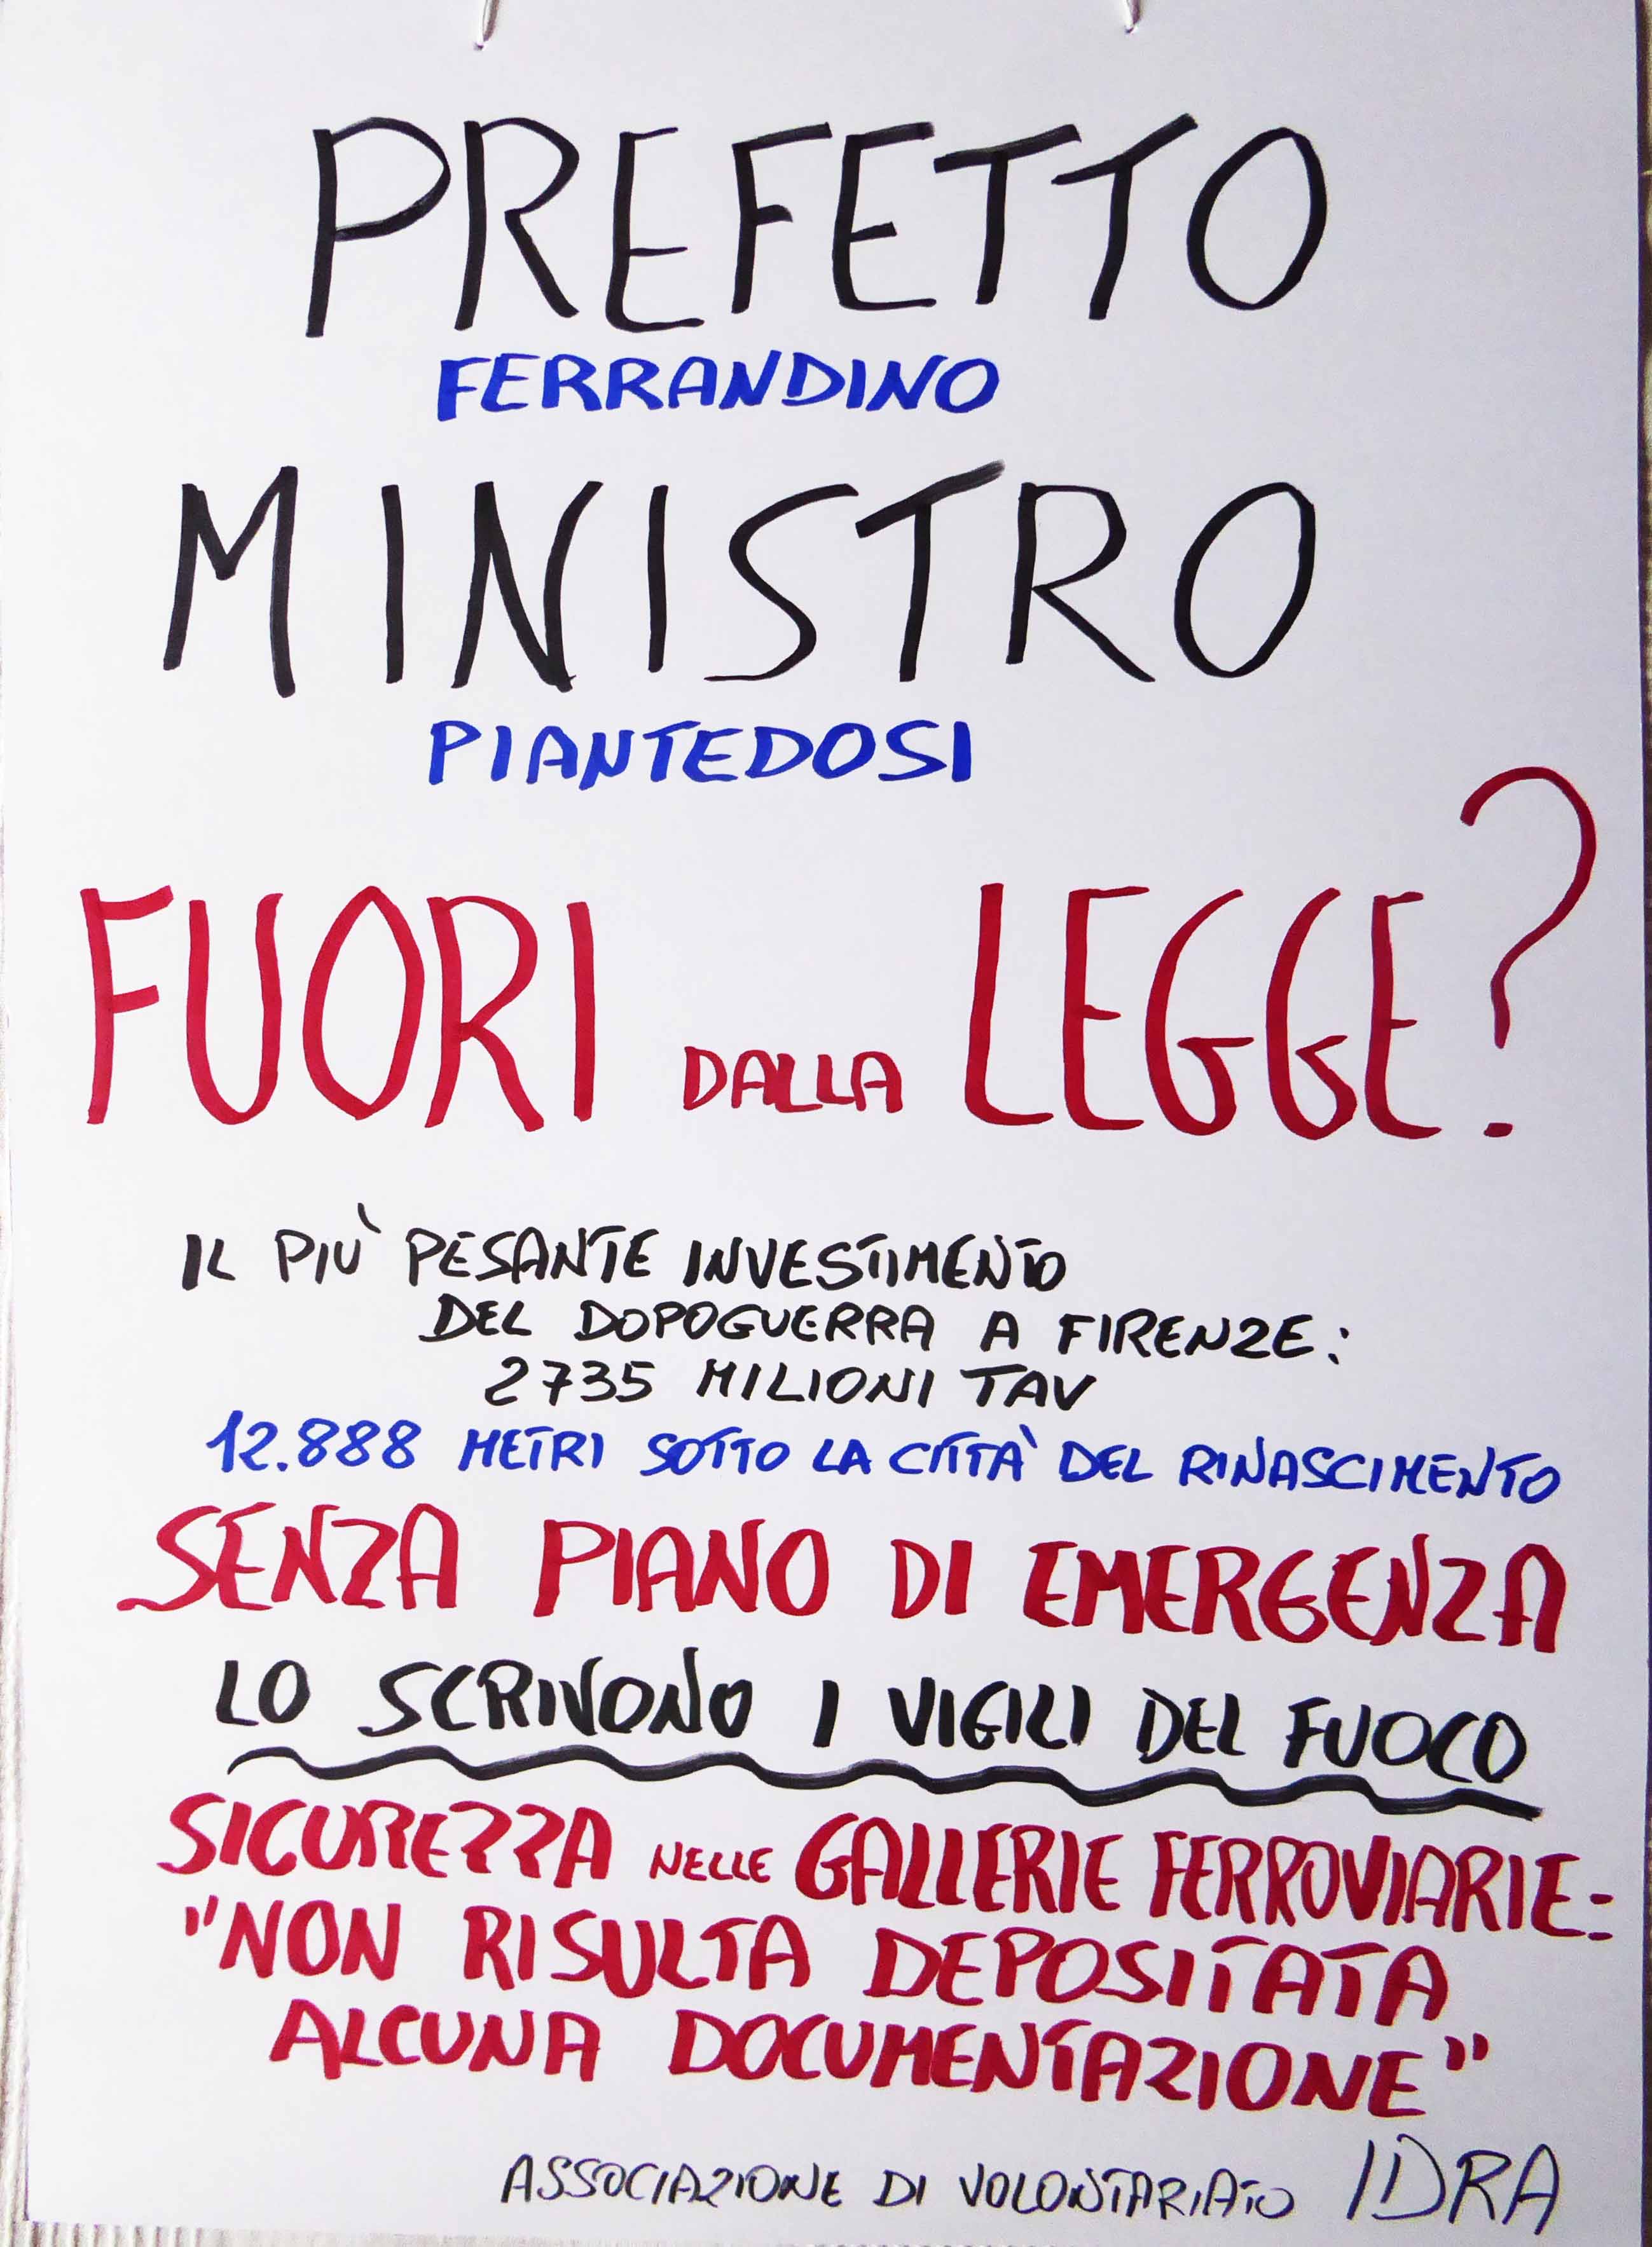 PREFETTO
FERRANDINO
MINISTRO
PIANTEDOSI
FUORI DALLA LEGGE?
IL PIÙ PESANTE INVESTIMENTO
DEL DOPOGUERRA A FIRENZE:
2735 MILIONI TAV
12.888 METRI SOTTO LA CITTÀ DEL RINASCIMENTO
SENZA PIANO DI EMERGENZA
LO SCRIVONO I VIGILI DEL FUOCO
SICUREZZA NELLE GALLERIE FERROVIARIE:
"NON RISULTA DEPOSITATA
ALCUNA DOCUMENTAZIONE"
ASSOCIAZIONE DI VOLONTARIATO IDRA